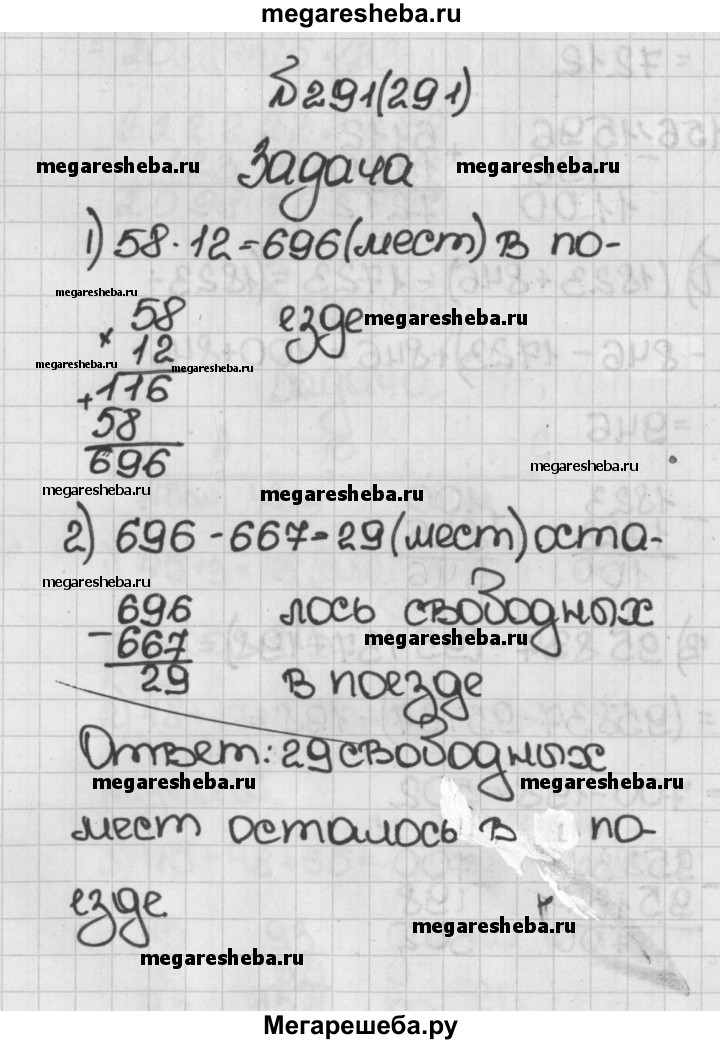 megaresheba.ru
№291(291)
megaresheba.ru Задача megaresheba.ru
1) 58·12=696(мест) в по-
megaresheba.ru
58 езде megaresheba.ru
× 12
megaresheba.ru megaresheba.ru
+116
58
696
megaresheba.ru
megaresheba.ru megaresheba.ru
2) 696-667=29(мест) оста-
megaresheba.ru
696 лось свободных
-667 megaresheba.ru
29 в поезде
Ответ: 29 свободных
megaresheba.ru megaresheba.ru
мест осталось в по-
езде
megaresheba.ru
megaresheba.ru
Мегарешеба.ру